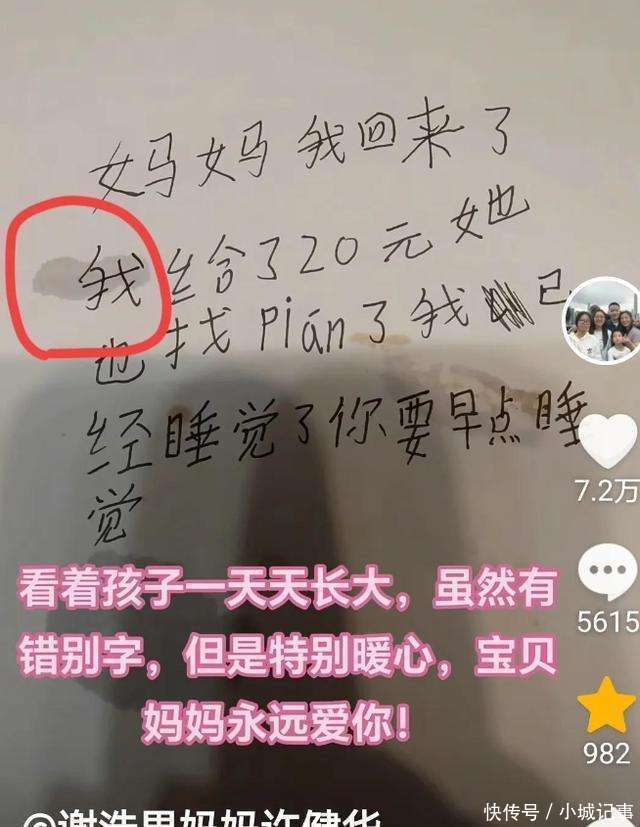 妈妈我回来了
我给了20元她
也找pián了我 已
经睡觉了你要早点睡
觉
7.2万
5615
看着孩子一天天长大，虽然有
错别字，但是特别暖心，宝贝
妈妈永远爱你！
982
快传号／小城记事